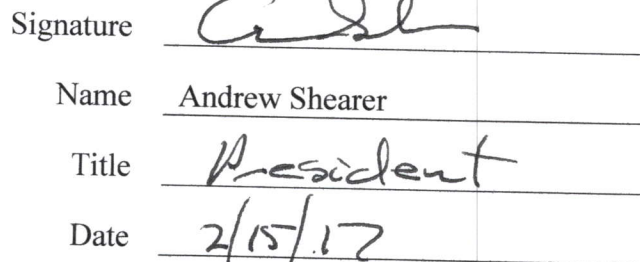 Signature
Name Andrew Shearer
Title President
Date 2/15/17